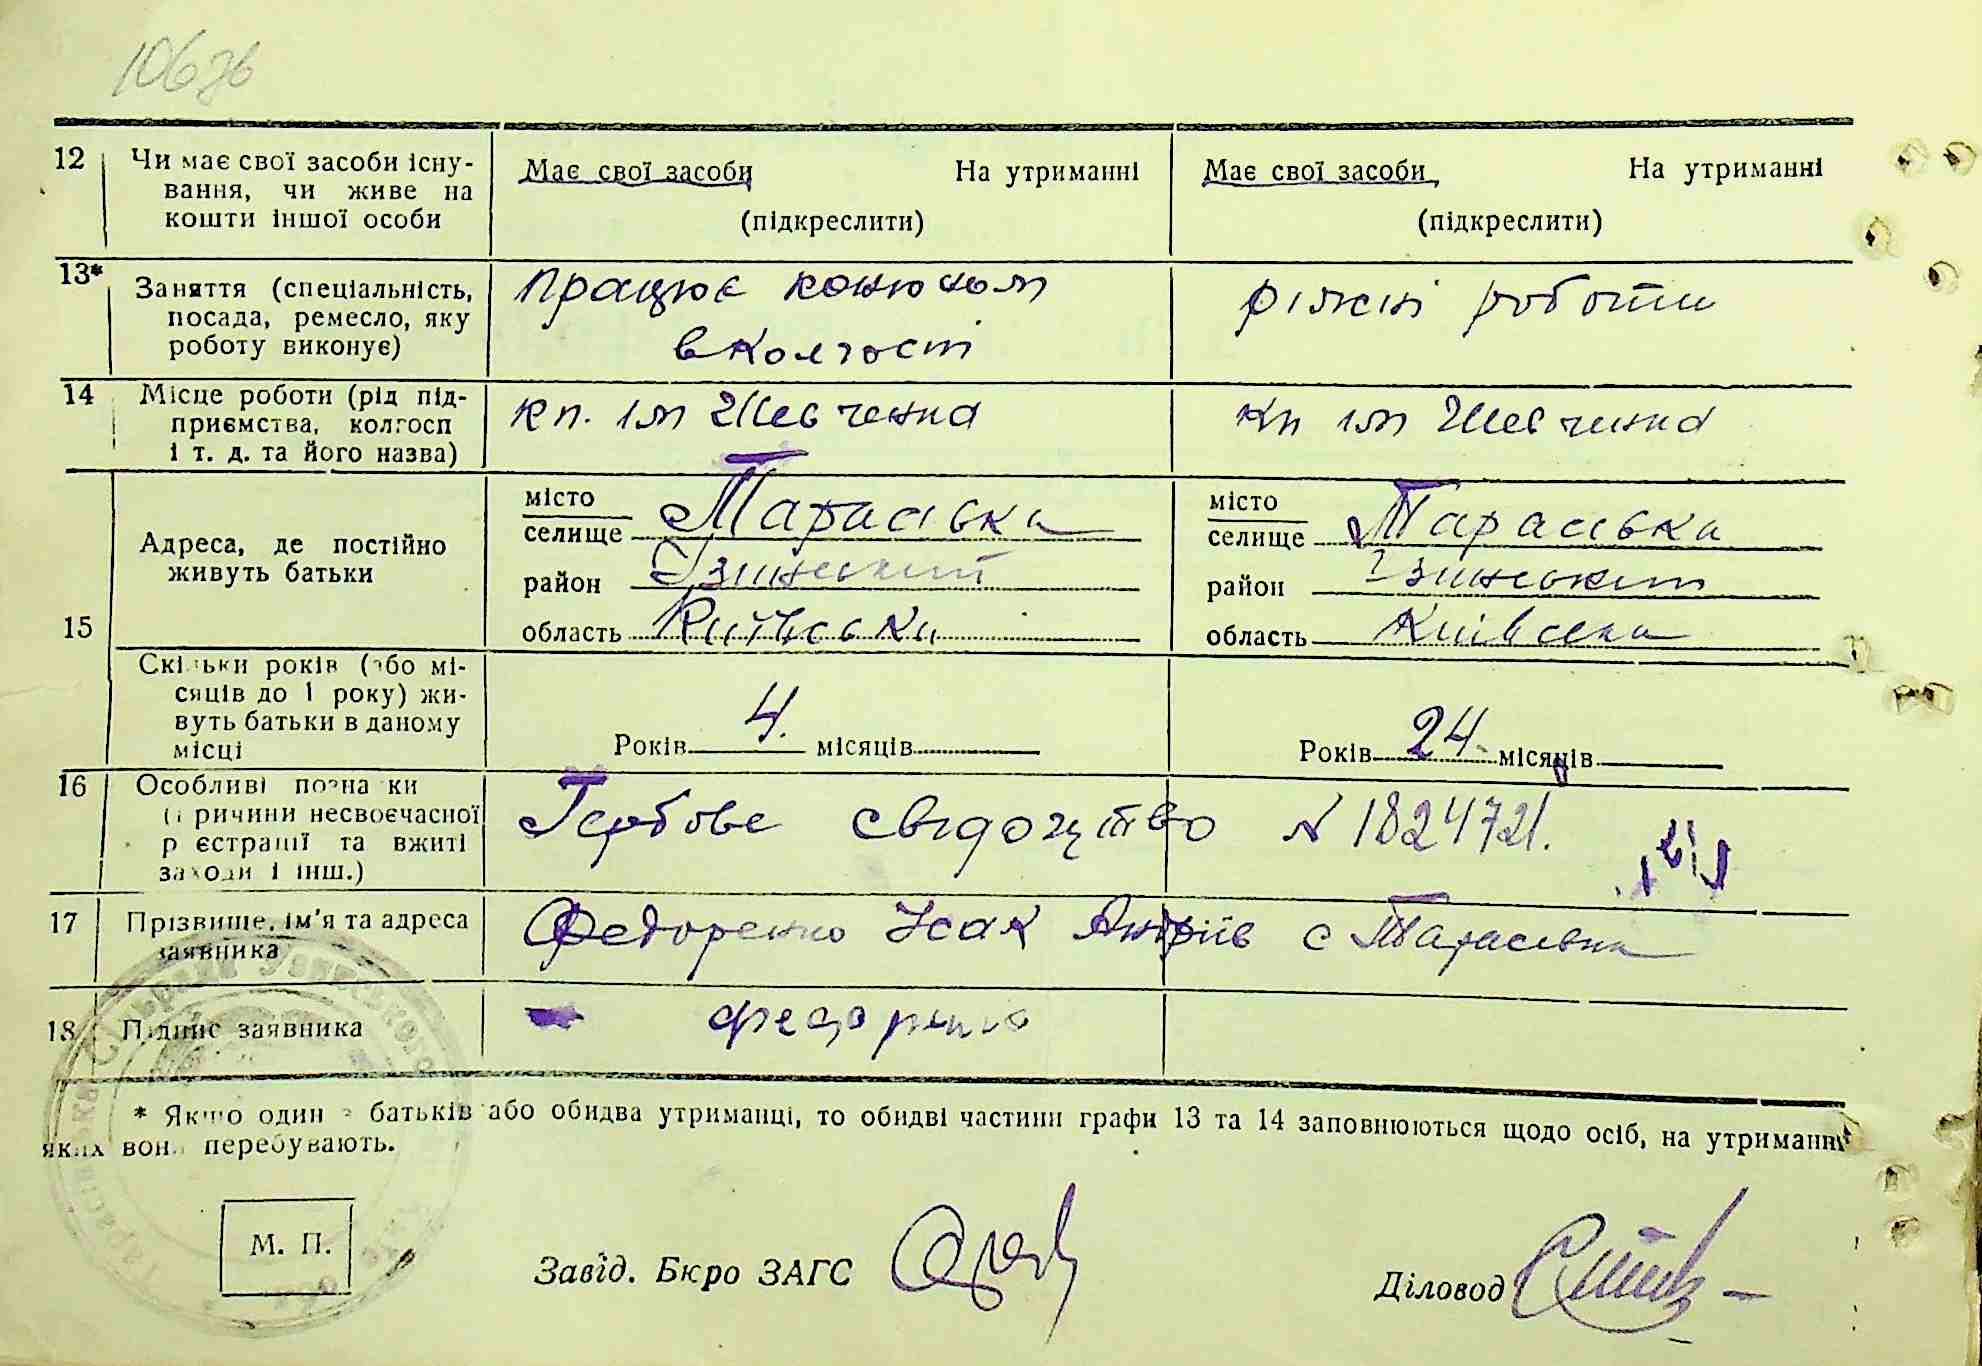 106зв
12 Чи має свої засоби існу- Має свої засоби На утриманні Має свої засоби На утриманні
вання, чи живе на
кошти іншої особи (підкреслити) (підкреслити)
13* Заняття (спеціальність, працює конюхом ріжні роботи
посада, ремесло, яку
роботу виконує) в колгості
14 Місце роботи (рід під- кп. ім Шевченка кп ім Шевченка
приємства, колгосп
і т. д. та його назва)
15 Адреса, де постійно живуть батьки
місто
селище Тарасівка
район Узинський
область Київська
місто
селище Тарасівка
район Узинський
область Київська
Скільки років (або мі-
сяців до 1 року) жи-
вуть батьки в даному
місці
Років 4. місяців Років 24 місяців
16 Особливі познаки Гербове свідоцтво № 1824721.
(причини несвоєчасної
реєстрації та вжиті
заходи і інш.)
17 Прізвище, ім'я та адреса Федоренко Ісак Андріїв с Тарасівка
заявника
18 Підпис заявника Федоренко
* Якщо один з батьків або обидва утриманці, то обидві частини графи 13 та 14 заповнюються щодо осіб, на утриманні
яких вони перебувають.
М. П.
Завід. Бюро ЗАГС
Діловод